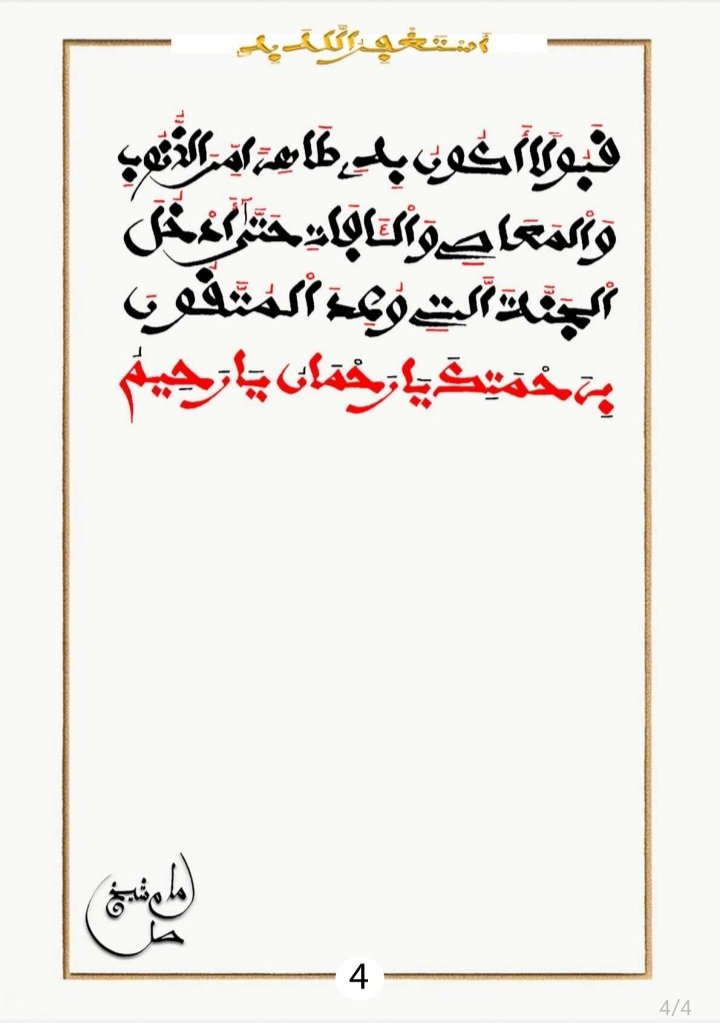 أَسْتَغْفِرُ اللَّهَ بِهِ
قَبُولًا أَكُونُ بِهِ طَاهِرًا مِنَ الذُّنُوبِ
وَالْمَعَاصِي وَالْآفَاتِ حَتَّى أَدْخُلَ
الْجَنَّةَ الَّتِي وُعِدَ الْمُتَّقُونَ
بِرَحْمَتِكَ يَا رَحْمَانُ يَا رَحِيمُ
امام شيخ
4
4/4